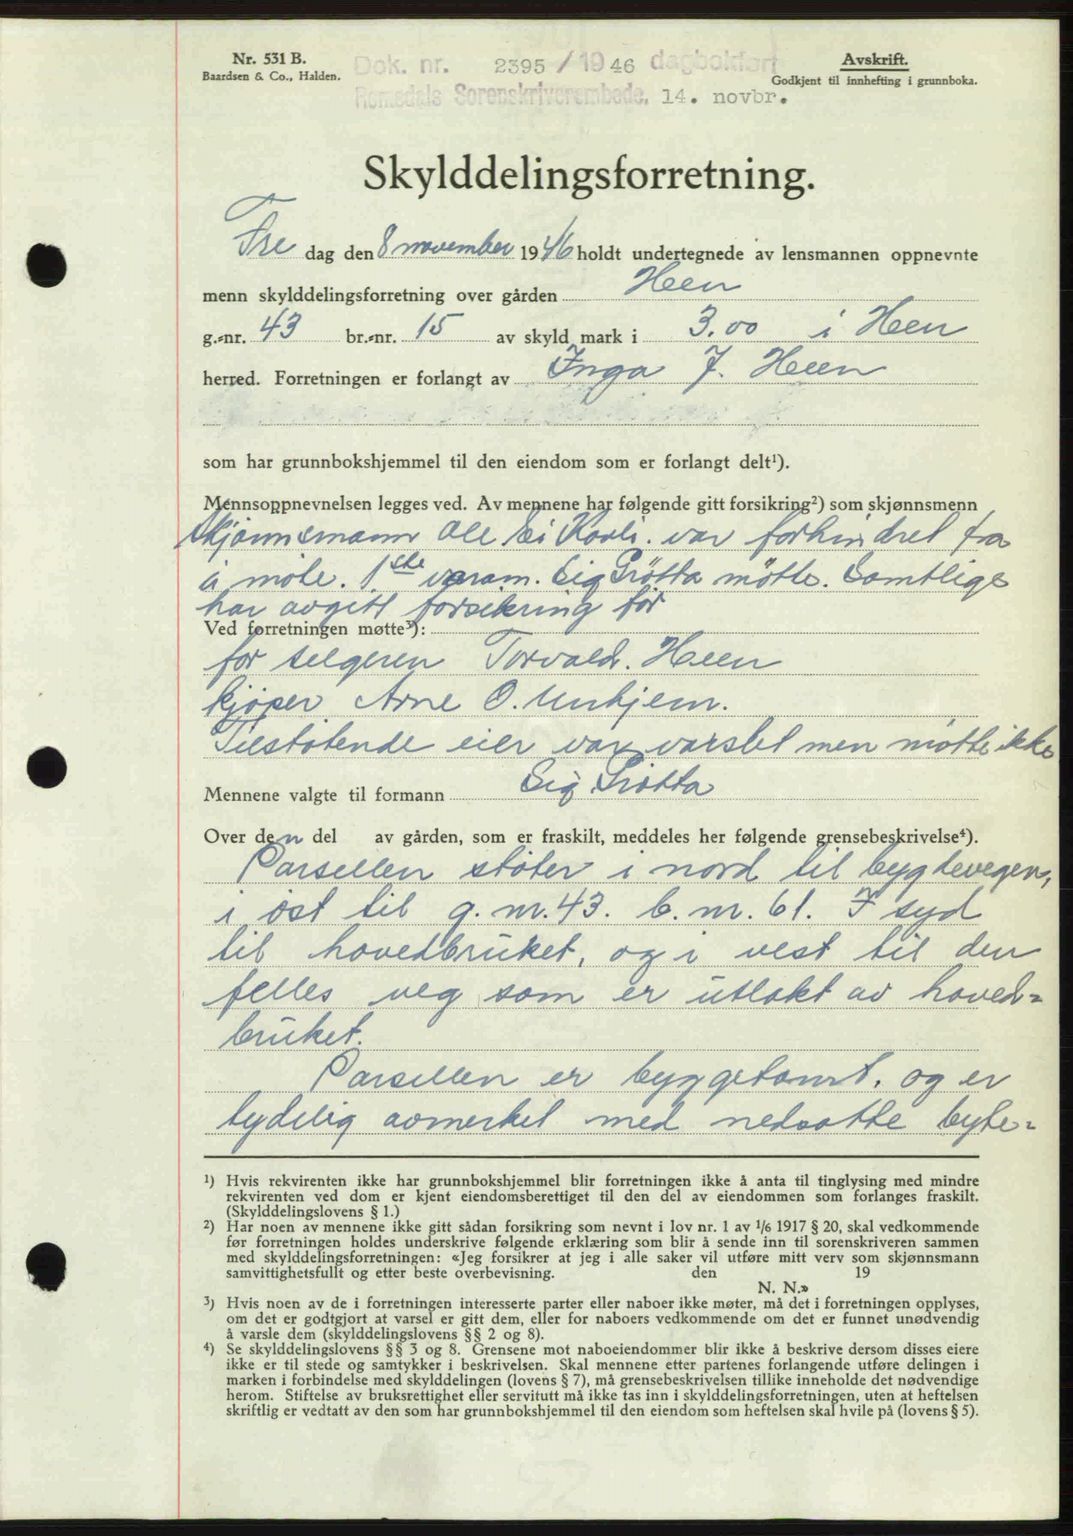 Nr. 531 B.
Baardsen & Co., Halden.
Dok. nr. 2395 / 1946 dagbokført
Romsdals Sorenskriverembede, 14. novbr.
Avskrift.
Godkjent til innhefting i grunnboka.
Skylddelingsforretning.
Fre dag den 8 november 1946 holdt undertegnede av lensmannen oppnevnte
menn skylddelingsforretning over gården Heen
g.-nr. 43 br.-nr. 15 av skyld mark i 3.00 i Heen
herred. Forretningen er forlangt av Inga J. Heen
som har grunnbokshjemmel til den eiendom som er forlangt delt¹).
Mennsoppnevnelsen legges ved. Av mennene har følgende gitt forsikring²) som skjønnsmenn
Skjønnsmann Ole Ei Kavli. var forhindret fra
å møte. 1ste varam. Sig Grøtta møtte. Samtlige
har avgitt forsikring før
Ved forretningen møtte³):
for selgeren Torvald. Heen
kjøper Arne O. Unhjem.
Tilstøtende eier var varslet men møtte ikke
Mennene valgte til formann Sig. Grøtta
Over den del av gården, som er fraskilt, meddeles her følgende grensebeskrivelse⁴).
Parsellen støter i nord til bygdevegen,
i øst til g. nr. 43. b. nr. 61. I syd
til hovedbruket, og i vest til den
felles veg som er utlakt av hoved=
bruket.
Parsellen er byggetomt, og er
tydelig avmerket med nedsatte byte=
¹) Hvis rekvirenten ikke har grunnbokshjemmel blir forretningen ikke å anta til tinglysing med mindre
rekvirenten ved dom er kjent eiendomsberettiget til den del av eiendommen som forlanges fraskilt.
(Skylddelingslovens § 1.)
²) Har noen av mennene ikke gitt sådan forsikring som nevnt i lov nr. 1 av ¹/6 1917 § 20, skal vedkommende
før forretningen holdes underskrive følgende erklæring som blir å sende inn til sorenskriveren sammen
med skylddelingsforretningen: «Jeg forsikrer at jeg i alle saker vil utføre mitt verv som skjønnsmann
samvittighetsfullt og etter beste overbevisning. den 19
N. N.»
³) Hvis noen av de i forretningen interesserte parter eller naboer ikke møter, må det i forretningen opplyses,
om det er godtgjort at varsel er gitt dem, eller for naboers vedkommende om det er funnet unødvendig
å varsle dem (skylddelingslovens §§ 2 og 8).
⁴) Se skylddelingslovens §§ 3 og 8. Grensene mot naboeiendommer blir ikke å beskrive dersom disses eiere
ikke er til stede og samtykker i beskrivelsen. Skal mennene etter partenes forlangende utføre delingen i
marken i forbindelse med skylddelingen (lovens § 7), må grensebeskrivelsen tillike inneholde det nødvendige
herom. Stiftelse av bruksrettighet eller servitutt må ikke tas inn i skylddelingsforretningen, uten at heftelsen
skriftlig er vedtatt av den som har grunnbokshjemmel til den eiendom som heftelsen skal hvile på (lovens § 5).